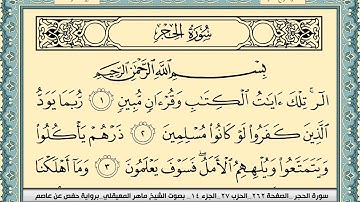 سُورَةُ الحِجْرِ
بِسْمِ اللَّهِ الرَّحْمَٰنِ الرَّحِيمِ
الٓر ۚ تِلْكَ ءَايَٰتُ الْكِتَٰبِ وَقُرْءَانٍ مُّبِينٍ ١ رُّبَمَا يَوَدُّ
الَّذِينَ كَفَرُوا لَوْ كَانُوا مُسْلِمِينَ ٢ ذَرْهُمْ يَأْكُلُوا
وَيَتَمَتَّعُوا وَيُلْهِهِمُ الْأَمَلُ ۖ فَسَوْفَ يَعْلَمُونَ ٣ وَمَا أَهْلَكْنَا
سورة الحجر _ الصفحة ٢٦٢ _ الحزب ٢٧ _ الجزء ١٤ _ بصوت الشيخ ماهر المعيقلي برواية حفص عن عاصم